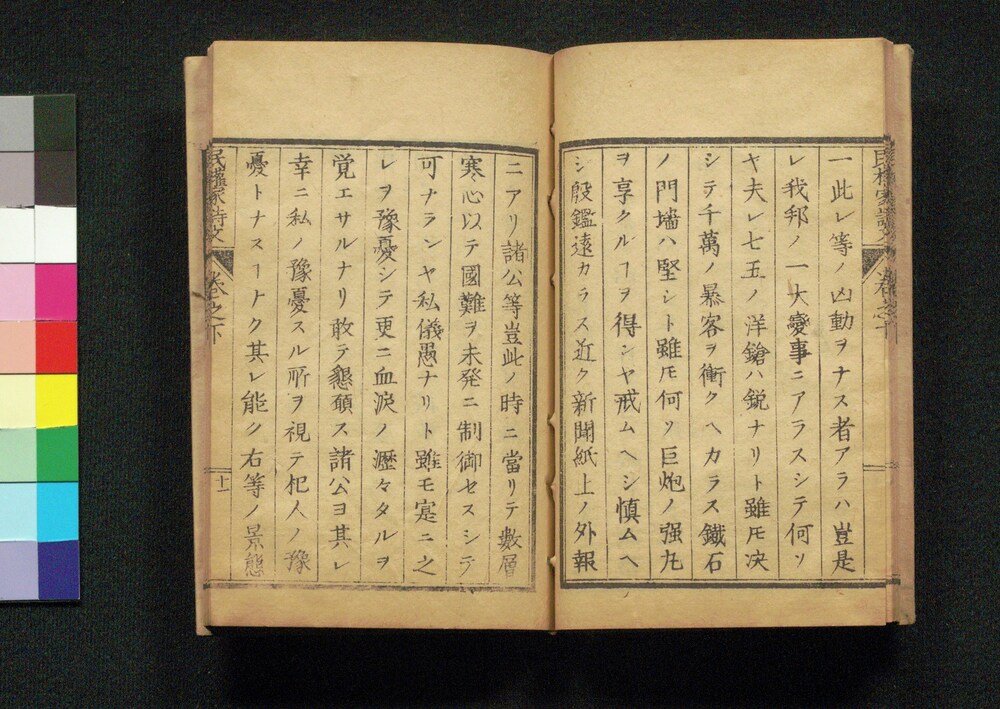 一此レ等ノ凶動ヲナス者アラハ豈是
レ我邦ノ一大變事ニアラスシテ何ソ
ヤ夫レ七五ノ洋鎗ハ鋭ナリト雖𪜈决
シテ千萬ノ暴客ヲ衝クヘカラス鐵石
ノ門墻ハ堅シト雖𪜈何ソ巨炮ノ强丸
ヲ享クルヿヲ得ンヤ戒ムヘシ慎ムヘ
シ殷鑑遠カラス近ク新聞紙上ノ外報
ニアリ諸公等豈此ノ時ニ當リテ數層
寒心以テ國難ヲ未発ニ制御セスシテ
可ナランヤ私儀愚ナリト雖モ寔ニ之
レヲ豫憂シテ更ニ血涙ノ瀝々タルヲ
覚エサルナリ敢テ懇願ス諸公ヨ其レ
幸ニ私ノ豫憂スル所ヲ視テ杞人ノ豫
憂トナスヿナク其レ能ク右等ノ景態
民權家詩文
卷之下
十一